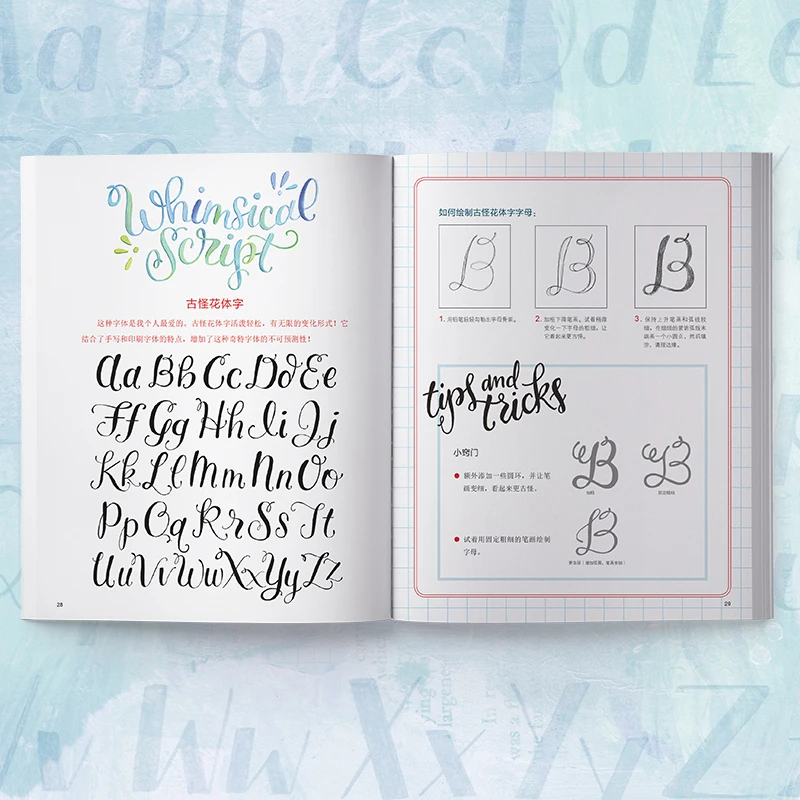 Bb Cc Dd Ee
Whimsical
Script
古怪花体字
这种字体是我个人最爱的。古怪花体字活泼轻松,有无限的变化形式!它
结合了手写和印刷字体的特点,增加了这种奇特字体的不可预测性!
Aa Bb Cc Dd Ee
Ff Gg Hh Ii Jj
Kk Ll Mm Nn Oo
Pp Qq Rr Ss Tt
Uu Vv Ww Xx Yy Zz
28
如何绘制古怪花体字字母:
B
B
B
1. 用铅笔轻轻勾勒出字母骨架。
2. 加粗下降笔画。试着稍微
变化一下字母的粗细,让
它看起来更古怪。
3. 保持上升笔画和弧线较
细。在细细的紧密弧线末
端画一个小圆点。然后填
tips and
tricks
小窍门
额外添加一些圆环,并让笔
画变细,看起来更古怪。
B
B
试着用固定粗细的笔画绘制
字母。
B
29
Ww Xx Yy Z